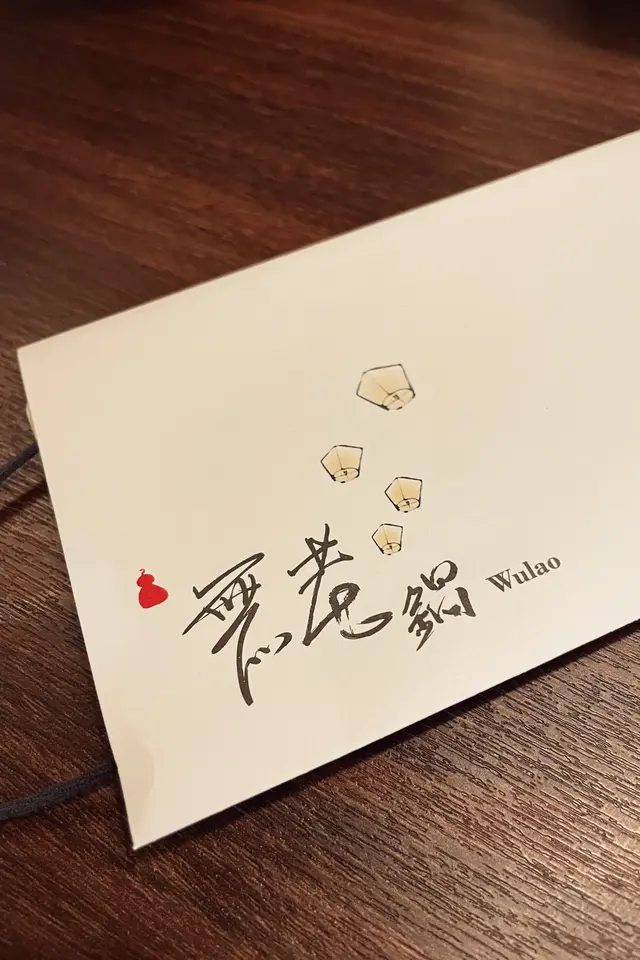 無老鍋 Wulao